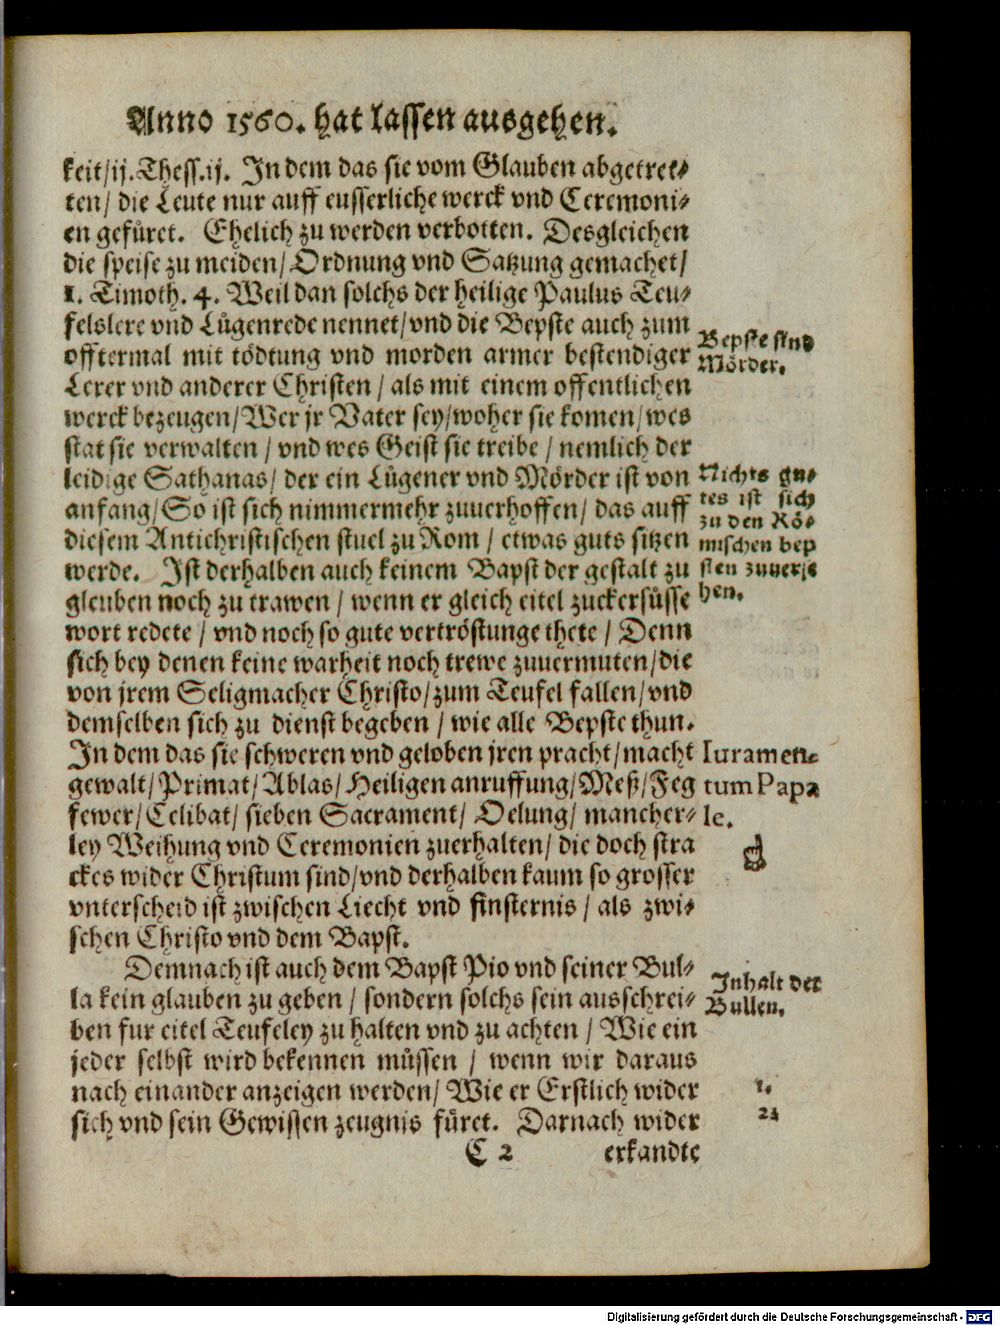 Anno 1560. hat lassen ausgehen.
keit/ij. Thess. ij. In dem das sie vom Glauben abgetret⸗
ten/ die Leute nur auff eusserliche werck vnd Ceremoni⸗
en gefüret. Ehelich zu werden verbotten. Desgleichen
die speise zu meiden/ Ordnung vnd Satzung gemachet/
1. Timoth. 4. Weil dan solchs der heilige Paulus Teu⸗
felslere vnd Lügenrede nennet/ vnd die Bepste auch zum
offtermal mit tödtung vnd morden armer bestendiger
Lerer vnd anderer Christen / als mit einem offentlichen
werck bezeugen/ Wer jr Vater sey/ woher sie komen/ wes
stat sie verwalten / vnd wes Geist sie treibe / nemlich der
leidige Sathanas/ der ein Lügener vnd Mörder ist von
anfang/ So ist sich nimmermehr zuuerhoffen/ das auff
diesem Antichristischen stuel zu Rom / etwas guts sitzen
werde. Ist derhalben auch keinem Bapst der gestalt zu
gleuben noch zu trawen / wenn er gleich eitel zuckersüsse
wort redete / vnd noch so gute vertröstunge thete / Denn
sich bey denen keine warheit noch trewe zuuermuten/ die
von jrem Seligmacher Christo/ zum Teufel fallen/ vnd
demselben sich zu dienst begeben / wie alle Bepste thun.
In dem das sie schweren vnd geloben jren pracht/ macht
gewalt/ Primat/ Ablas/ Heiligen anruffung/ Meß/ Feg
fewer/ Celibat/ sieben Sacrament/ Oelung/ mancher⸗
ley Weihung vnd Ceremonien zuerhalten/ die doch stra
ckes wider Christum sind/ vnd derhalben kaum so grosser
vnterscheid ist zwischen Liecht vnd finsternis / als zwi⸗
schen Christo vnd dem Bapst.
Demnach ist auch dem Bapst Pio vnd seiner Bul⸗
la kein glauben zu geben / sondern solchs sein ausschrei⸗
ben fur eitel Teufeley zu halten vnd zu achten / Wie ein
jeder selbst wird bekennen müssen / wenn wir daraus
nach einander anzeigen werden/ Wie er Erstlich wider
sich vnd sein Gewissen zeugnis füret. Darnach wider
C 2 erkandte
Bepste sind
Mörder.
Nichts gu⸗
tes ist sich
zu den Rö⸗
mischen bep
sten zuuerse
hen.
Iuramen⸗
tum Papa
le.
Inhalt der
Bullen.
1.
2.
Digitalisierung gefördert durch die Deutsche Forschungsgemeinschaft - DFG